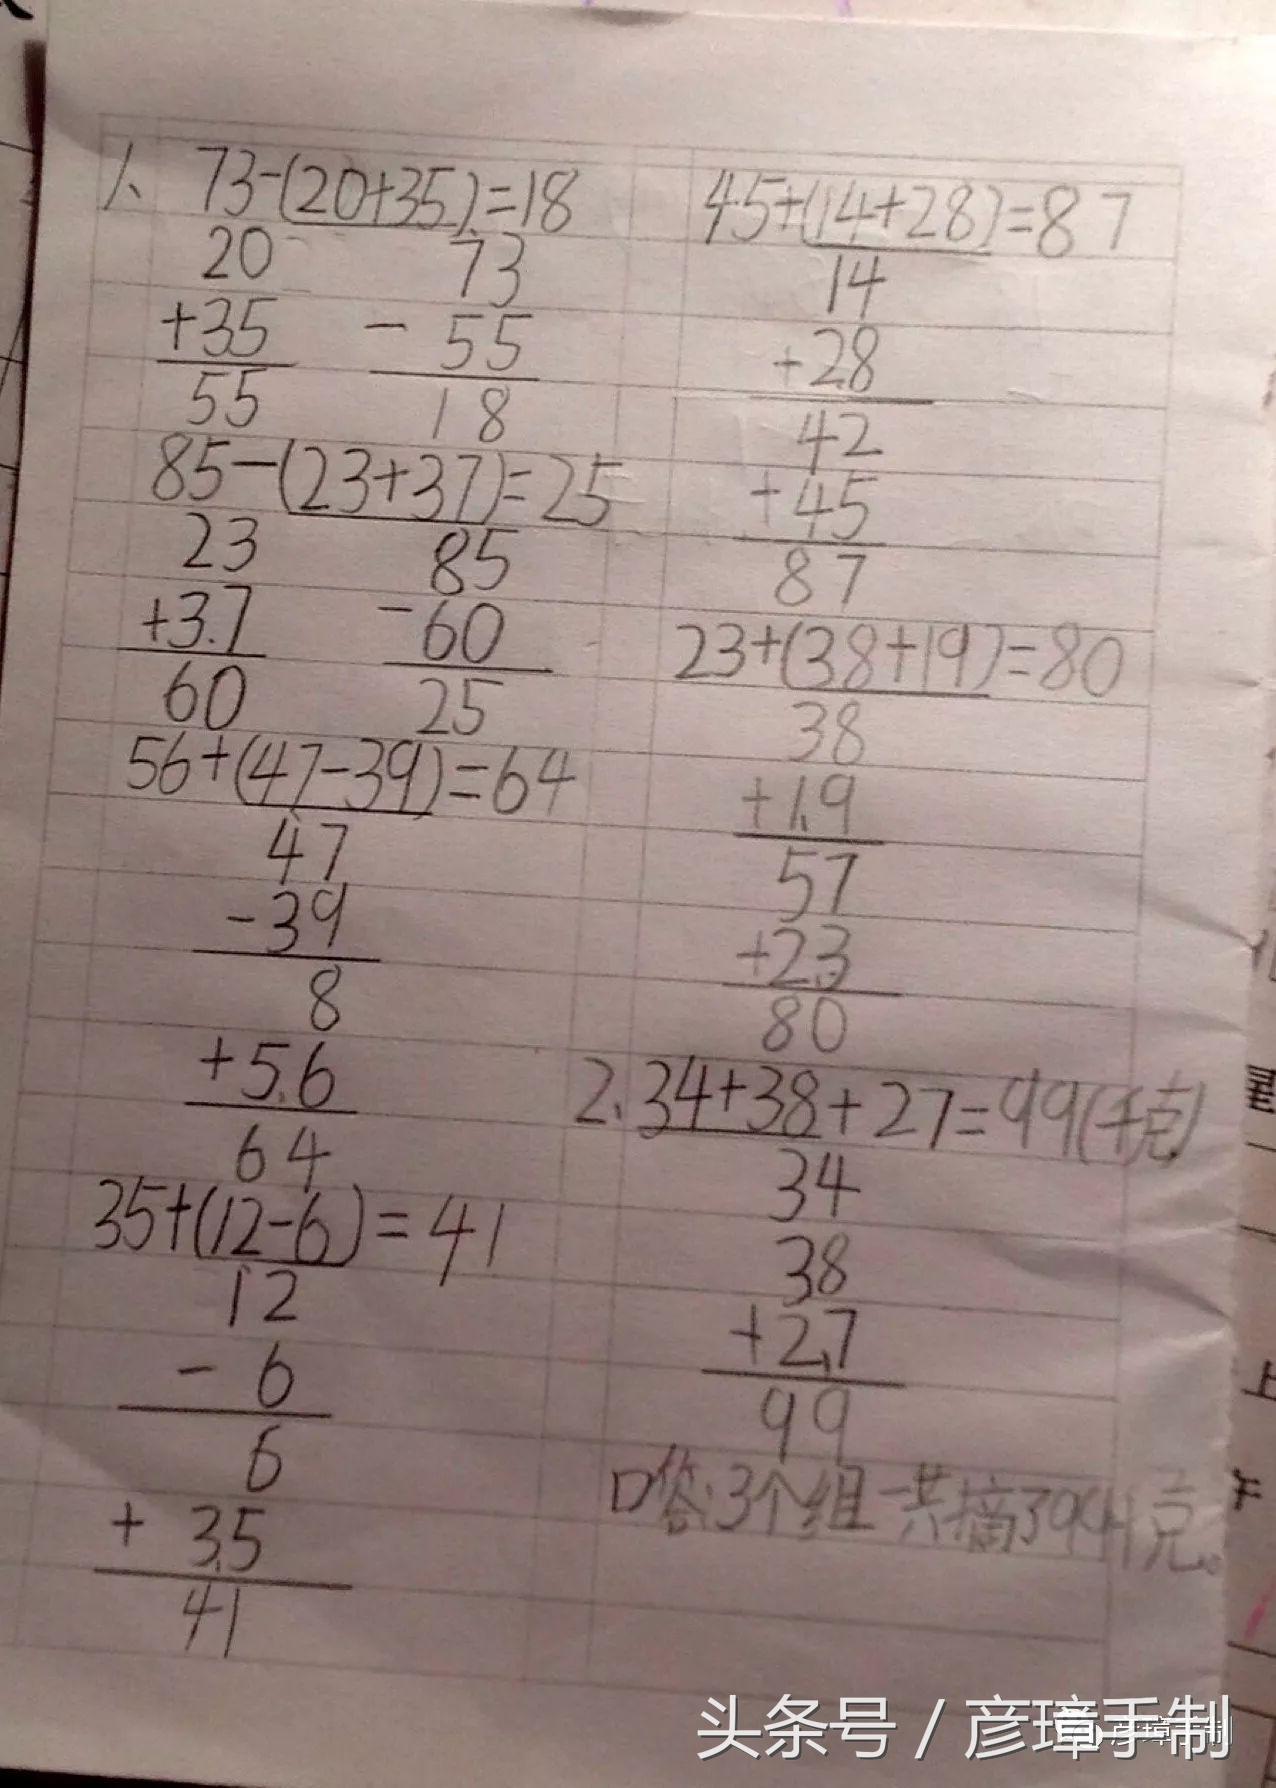 1、 73-(20+35)=18
20 73
+35 - 55
55 18
85-(23+37)=25
23 85
+37 -60
60 25
56+(47-39)=64
47
-39
8
+56
64
35+(12-6)=41
12
- 6
6
+ 35
41
45+(14+28)=87
14
+28
42
+45
87
23+(38+19)=80
38
+19
57
+23
80
2、34+38+27=99(千克)
34
38
+27
99
口答:3个组一共摘了99千克。
头条号 / 彦璋手制